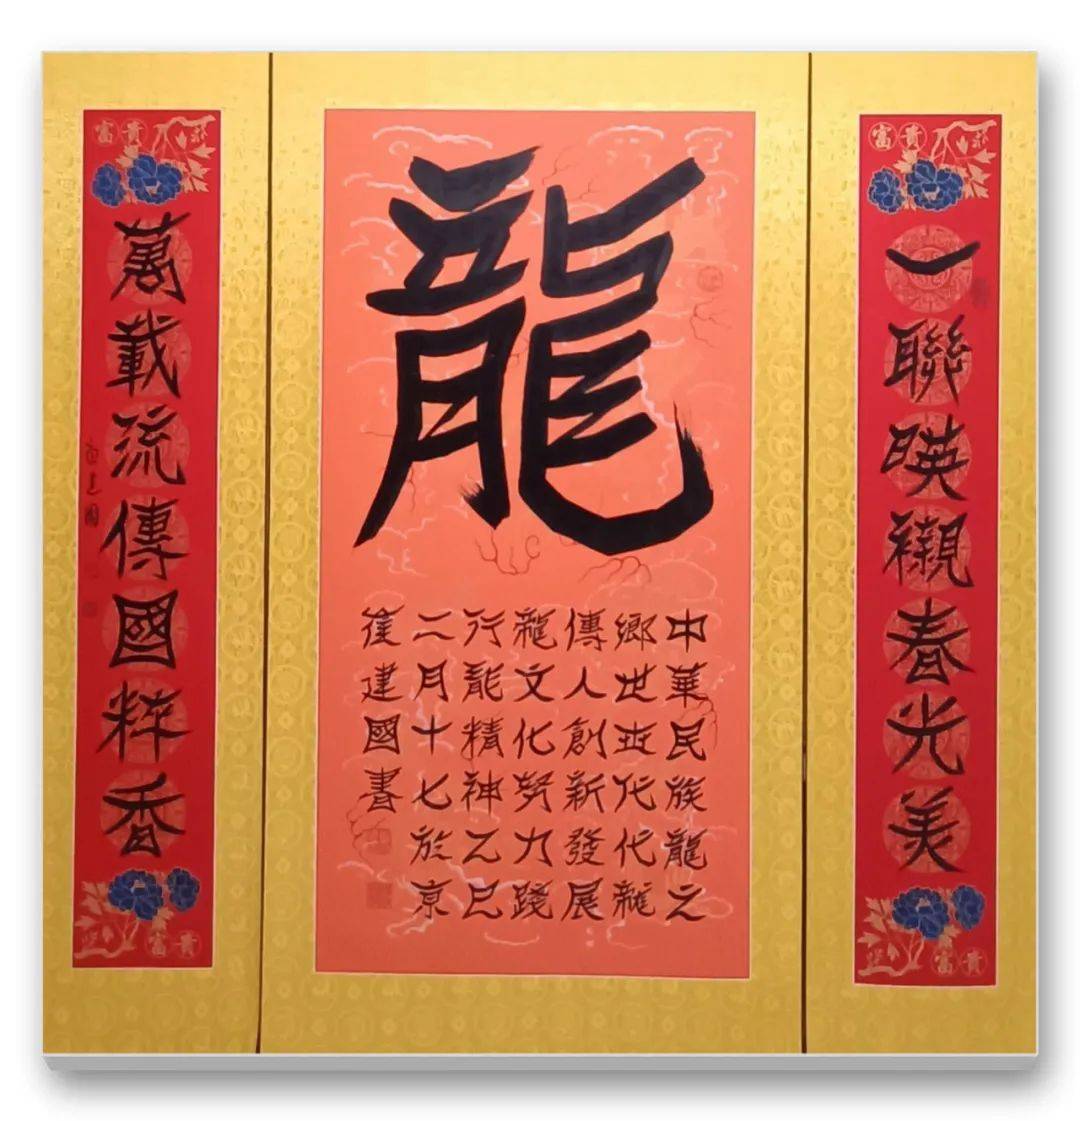 富貴
一聯暎襯春光美
富貴
龍
中華民族龍之
鄉世世代代龍
傳人創新發展
龍文化努力踐
行龍精神乙巳
二月十七於京
崔建國書
富貴
萬載流傳國粹香
崔建國
富貴